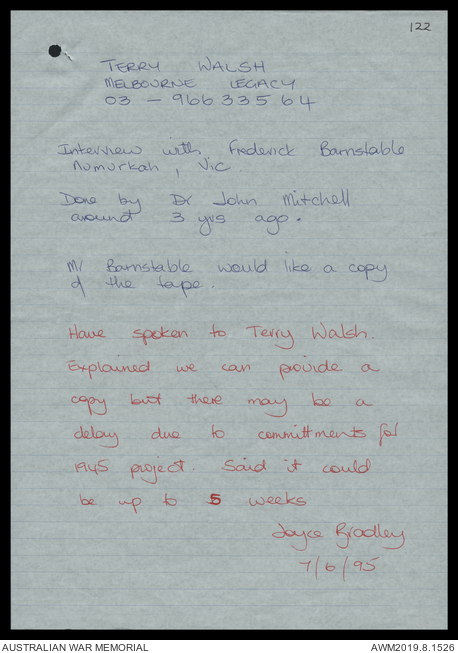 122
TERRY WALSH
MELBOURNE LEGACY
03 - 966 335 64
Interview with Frederick Barnstable
Numurkah, Vic.
Done by Dr John Mitchell
around 3 yrs ago.
Mr Barnstable would like a copy
of the tape.
Have spoken to Terry Walsh.
Explained we can provide a
copy but there may be a
delay due to committments for
1945 project. Said it could
be up to 5 weeks
Joyce Bradley
7/6/95
AUSTRALIAN WAR MEMORIAL AWM2019.8.1526